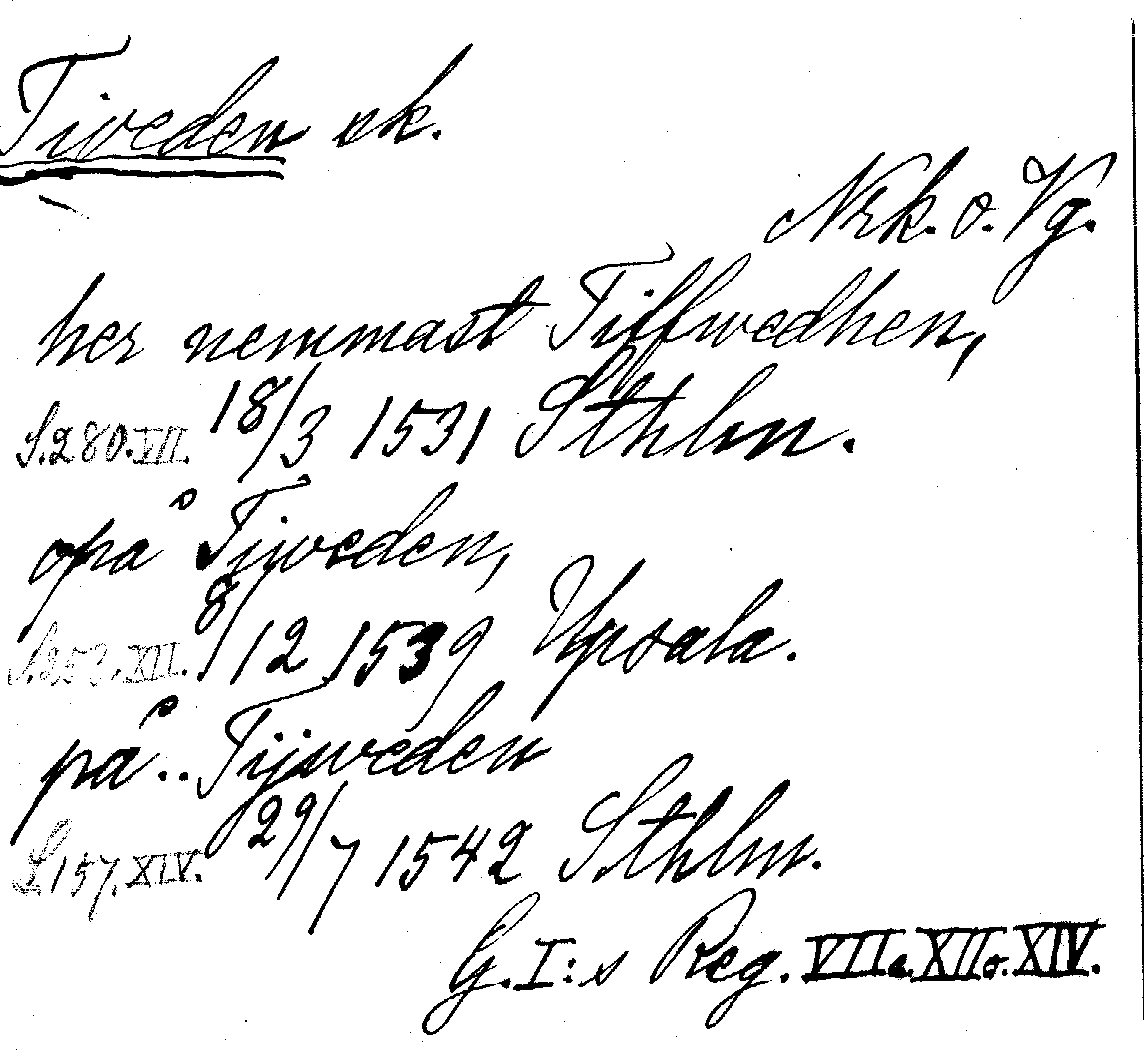 Tiveden sk.
Nrk. o. Vg.
her nemmast Tiffwedhen,
S. 280. VII. 18/3 1531 Sthlm.
opå Tijweden,
S. 253. XII. 8/12 1539 Upsala.
på.. Tijweden
S. 157. XIV. 29/7 1542 Sthlm.
G. I:s Reg. VII o. XII o. XIV.